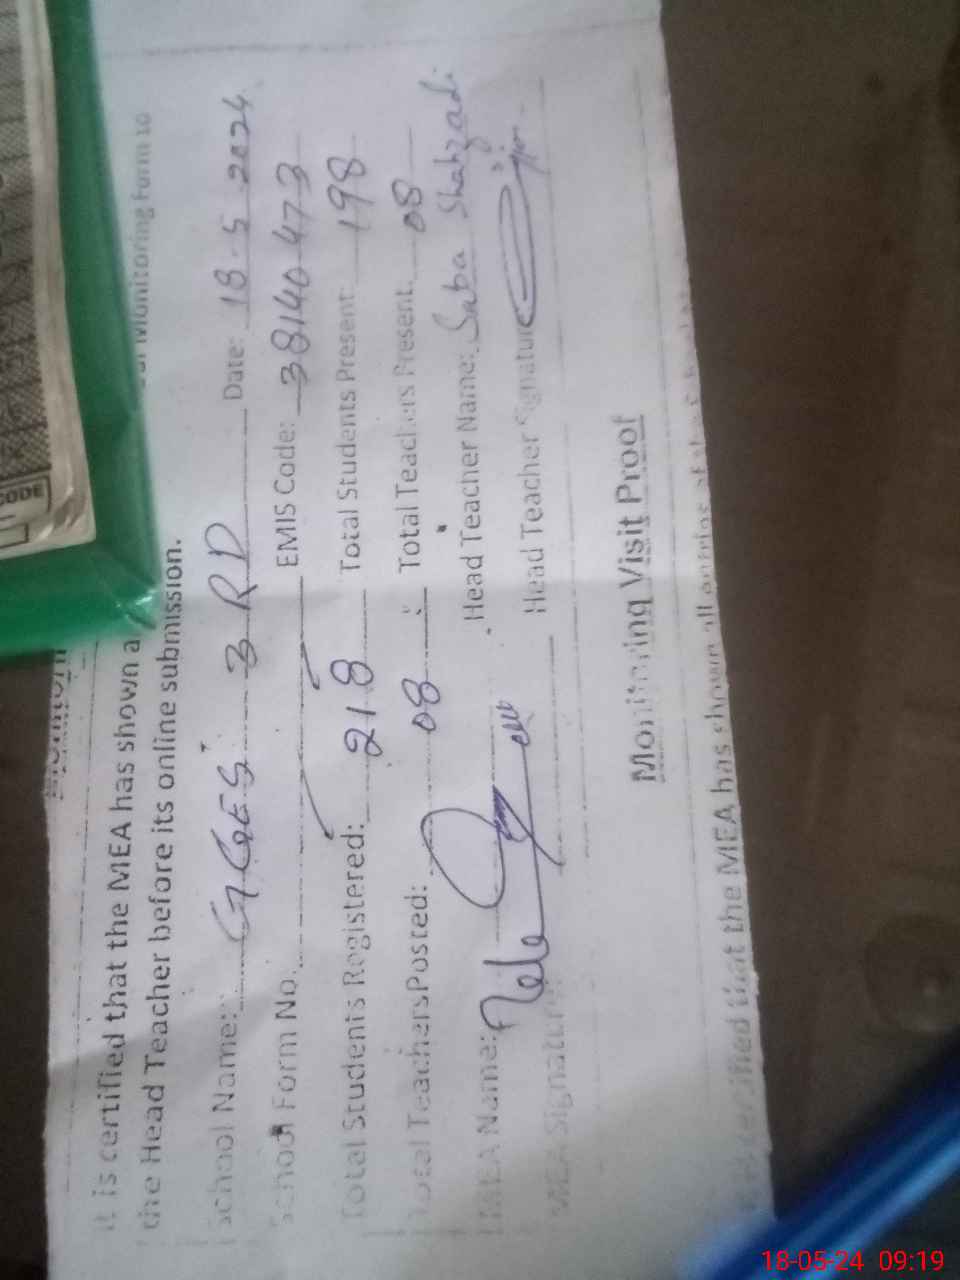 It is certified that the MEA has shown a Monitoring Form to
the Head Teacher before its online submission.
School Name: GGES 3 RD Date: 18-5-2024
School Form No. EMIS Code: 38140473
Total Students Registered: 218 Total Students Present: 198
Total Teachers Posted: 08 Total Teachers Present: 08
MEA Name: Head Teacher Name: Saba Shahzadi
MEA Signature Head Teacher Signature
Monitoring Visit Proof
is certified that the MEA has shown all entries of
CODE
18-05-24 09:19